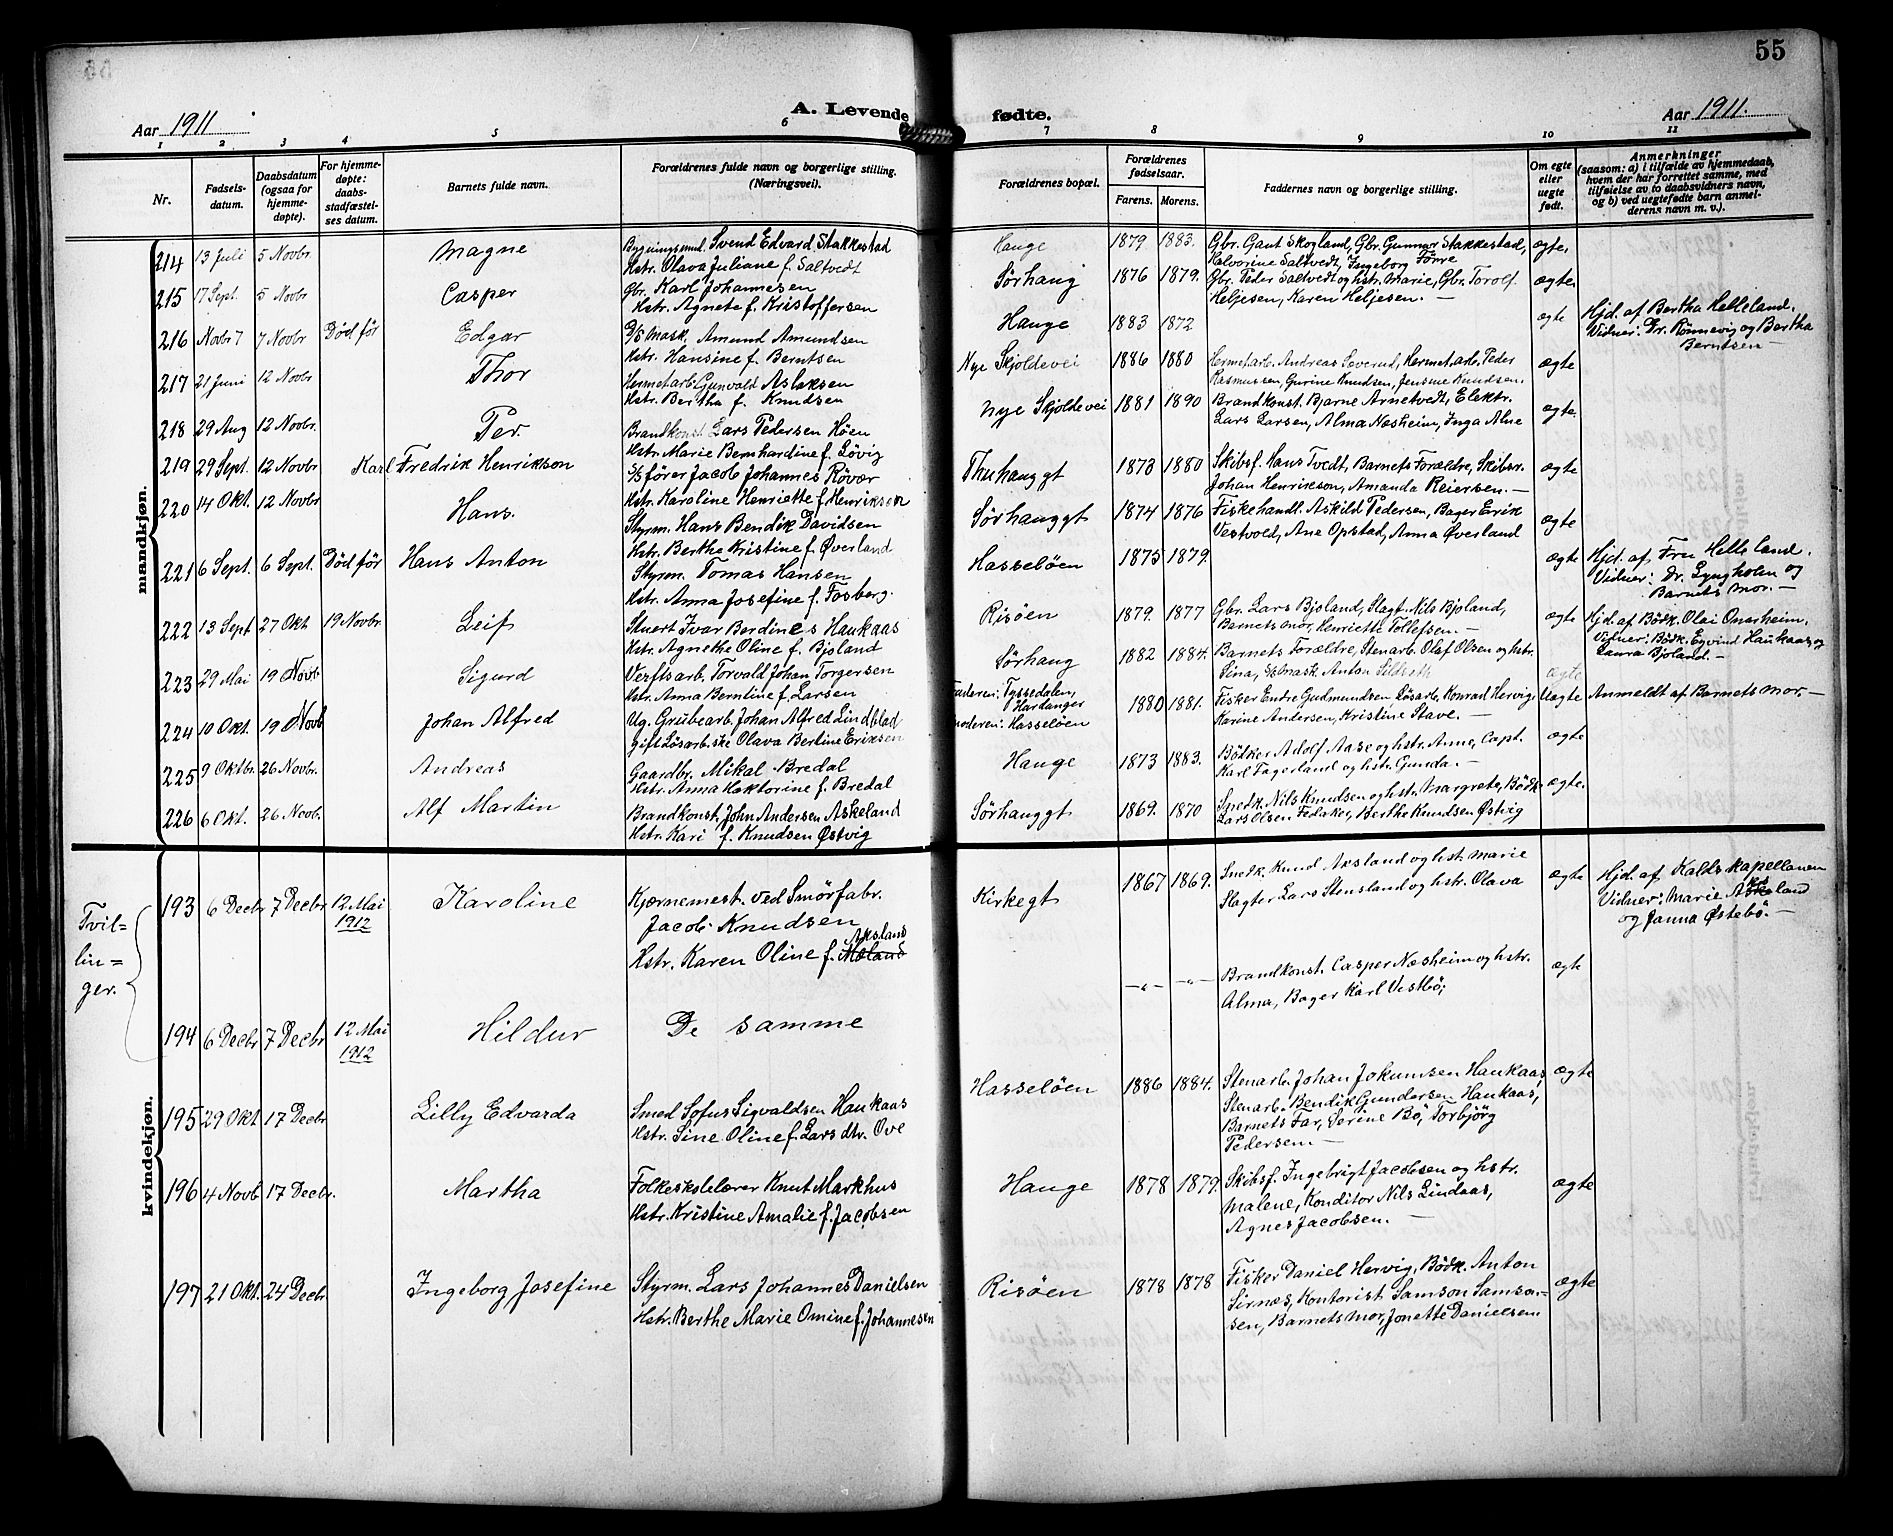 55
A. Levende fødte.
Aar 1911
Aar 1911.
1 2 3 4 5 6 7 8 9 10 11
Nr.
Fødsels-
datum.
Daabsdatum
(ogsaa for
hjemme-
døpte).
For hjemme-
døpte:
daabs-
stadfæstel-
ses datum.
Barnets fulde navn.
Forældrenes fulde navn og borgerlige stilling.
(Næringsvei).
Forældrenes bopæl.
Forældrenes
fødselsaar.
Farens. Morens.
Faddernes navn og borgerlige stilling.
Om egte
eller
uegte
født.
Anmerkninger
(saasom: a) i tilfælde av hjemmedaab,
hvem der har forrettet samme, med
tilføielse av to daabsvidners navn,
og b) ved uegtefødte barn anmel-
derens navn m. v.).
mandkjøn.
214 13 Juli 5 Novbr Magne
Bygningssnd. Svend Edvard Stakkestad
Hstr. Olava Juliane f. Saltvedt
Hauge 1879 1883.
Gbr. Gaut Skogland, Gbr. Gunnar Stakkestad,
Halvorine Saltvedt, Ingeborg Förre
ægte.
215 17 Sept. 5 Novbr Casper
Gbr. Karl Johannesen
Hstr. Agnete f. Kristoffersen
Sörhaug 1876 1879.
Gbr. Peder Saltvedt og hstr. Marie, Gbr. Torolf
Heljesen, Karen Heljesen. —
ægte.
216 Novbr 7 7 Novbr Död för Edgar
D/S Mask. Amund Amundsen
Hstr. Hansine f. Berntsen
Hauge 1883 1872
ægte
Hjd. af Bertha Helleland.
Vidner: Dr. Rönnevig og Bertha
Berntsen —
217 21 Juni 12 Novbr Thor
Hermetarb. Gunvald Aslaksen
Hstr. Bertha f. Knudsen
Nye Skjoldevei 1886 1880
Hermetarb. Andreas Severud, Hermetarb. Peder
Rasmussen, Gurine Knudsen, Jensine Knudsen.
ægte
218 29 Aug 12 Novbr. Per.
Brandkonst. Lars Pedersen Höen
Hstr. Marie Bernhardine f. Lövig
Nye Skjoldevei 1881 1890
Brandkonst. Bjarne Arnetvedt, Elektr.
Lars Larsen, Alma Næsheim, Inga Alne
ægte.
219 29 Sept. 12 Novbr Karl Fredrik Henrikson
S/S förer Jacob Johannes Rövær
Hstr. Karoline Henriette f. Henriksen
Thuhauggt 1873 1880
Skibsf. Hans Tvedt, Barnets Forældre, Skibsr.
Johan Henrikson, Amanda Reiersen. —
ægte
220 14 Okt. 12 Novbr Hans.
Styrm. Hans Bendik Davidsen
Hstr. Berthe Kristine f. Øverland
Sörhauggt 1874 1876
Fiskehandl. Askild Pedersen, Bager Erik
Vestvold, Ane Opstad, Anna Øverland
ægte
221 6 Sept. 6 Sept. Död för Hans Anton
Styrm. Tomas Hansen
Hstr. Anna Josefine f. Fosberg.
Hasselöen 1875 1879.
ægte
Hjd. af Fru Helleland.
Vidner: Dr. Lyngholm og
Barnets Mor. —
222 13 Sept 27 Okt 19 Novbr. Leif
Stuert Ivar Berdines Haukaas
Hstr. Agnethe Oline f. Bjoland
Risöen 1879. 1877
Gbr. Lars Bjoland, Slagt. Nils Bjoland,
Barnets Mor, Henriette Tollefsen. —
ægte
Hjd. af Bödk. Olai Onarheim.
Vidner: Bödk. Eyvind Haukaas og
Laura Bjoland. —
223 29 Mai 19 Novb Sigurd
Verftsarb. Torvald Johan Torgersen
Hstr. Anna Berntine f. Larsen
Sörhaug 1882 1884.
Barnets Forældre, Stenarb. Olaf Olsen og hstr.
Sina, Mask Anton Sildreth
ægte
224 10 Okt. 19 Novb Johan Alfred
Ug. Grubearb. Johan Alfred Lindblad
gift Lösarb.ske Olava Bertine Eriksen
Faderen: Tyssedalen,
Hardanger
Moderen: Hasselöen
1880 1881.
Fisker Endre Gudmundsen, Lösarb. Konrad Hervig,
Karine Andersen, Kristine Stave. —
Uægte
Anmeldt af Barnets Mor. —
225 9 Oktbr. 26 Novbr. Andreas
Gaardbr. Mikal Bredal
Hstr. Anna Hektorine f. Bredal
Hauge 1873 1883.
Bötker Adolf Aase og hstr. Anne, Capt.
Karl Fagerland og hstr. Gunda. —
ægte
226 6 Okt. 26 Novb. Alf Martin
Brandkonst. John Andersen Askeland
Hstr. Kari f. Knudsen Østvig
Sörhauggt 1869. 1870
Snedk. Nils Knudsen og hstr. Margrete, Bödk
Lars Olsen Fedaker, Berthe Knudsen Østvig
ægte.
kvindekjøn.
Tvil-
lin=
ger.
193 6 Decbr 7 Decbr 12 Mai
1912
Karoline
Kjærnemest. ved Smörfabr.
Jacob Knudsen
Aksland
Hstr. Karen Oline f. Mæland
Kirkegt 1867 1869.
Snedk. Knud Aksland og hst. Marie
Slagter Lars Stensland og hstr. Olava
ægte
Hjd. af Kaldskapellanen
Vidner: Marie Aksland
og Janna Østebö. —
194 6 Decbr 7 Decbr 12 Mai
1912
Hildur
De samme
—"— —"—
Brandkonst. Casper Næsheim og hstr.
Alma, Bager Karl Vestbö;
ægte
195 29 Okt 17 Decbr Lilly Edvarda
Smed Sofus Sigvaldsen Haukaas
Hstr. Sine Oline f. Lars dtr. Ove
Hasselöen 1886 1884.
Stenarb. Johan Jokumsen Haukaas,
Stenarb. Bendik Gundersen Haukaas,
Barnets Far, Serine Bö, Torbjörg
Pedersen. —
ægte
196 4 Novb 17 Decbr. Martha
Folkeskolelærer Knut Markhus
Hstr. Kristine Amalie f. Jacobsen
Hauge 1878 1879.
Skibsf. Ingebrigt Jacobsen og hstr.
Malene, Konditor Nils Lindaas,
Agnes Jacobsen. —
ægte
197 21 Okt. 24 Decbr Ingeborg Josefine
Styrm. Lars Johannes Danielsen
Hstr. Berthe Marie Omine f. Johannesen
Risöen 1878 1878
Fisker Daniel Hervig, Bödk. Anton
Sirnæs, Kontorist Samson Samson=
sen, Barnets Mor, Jonette Danielsen
ægte